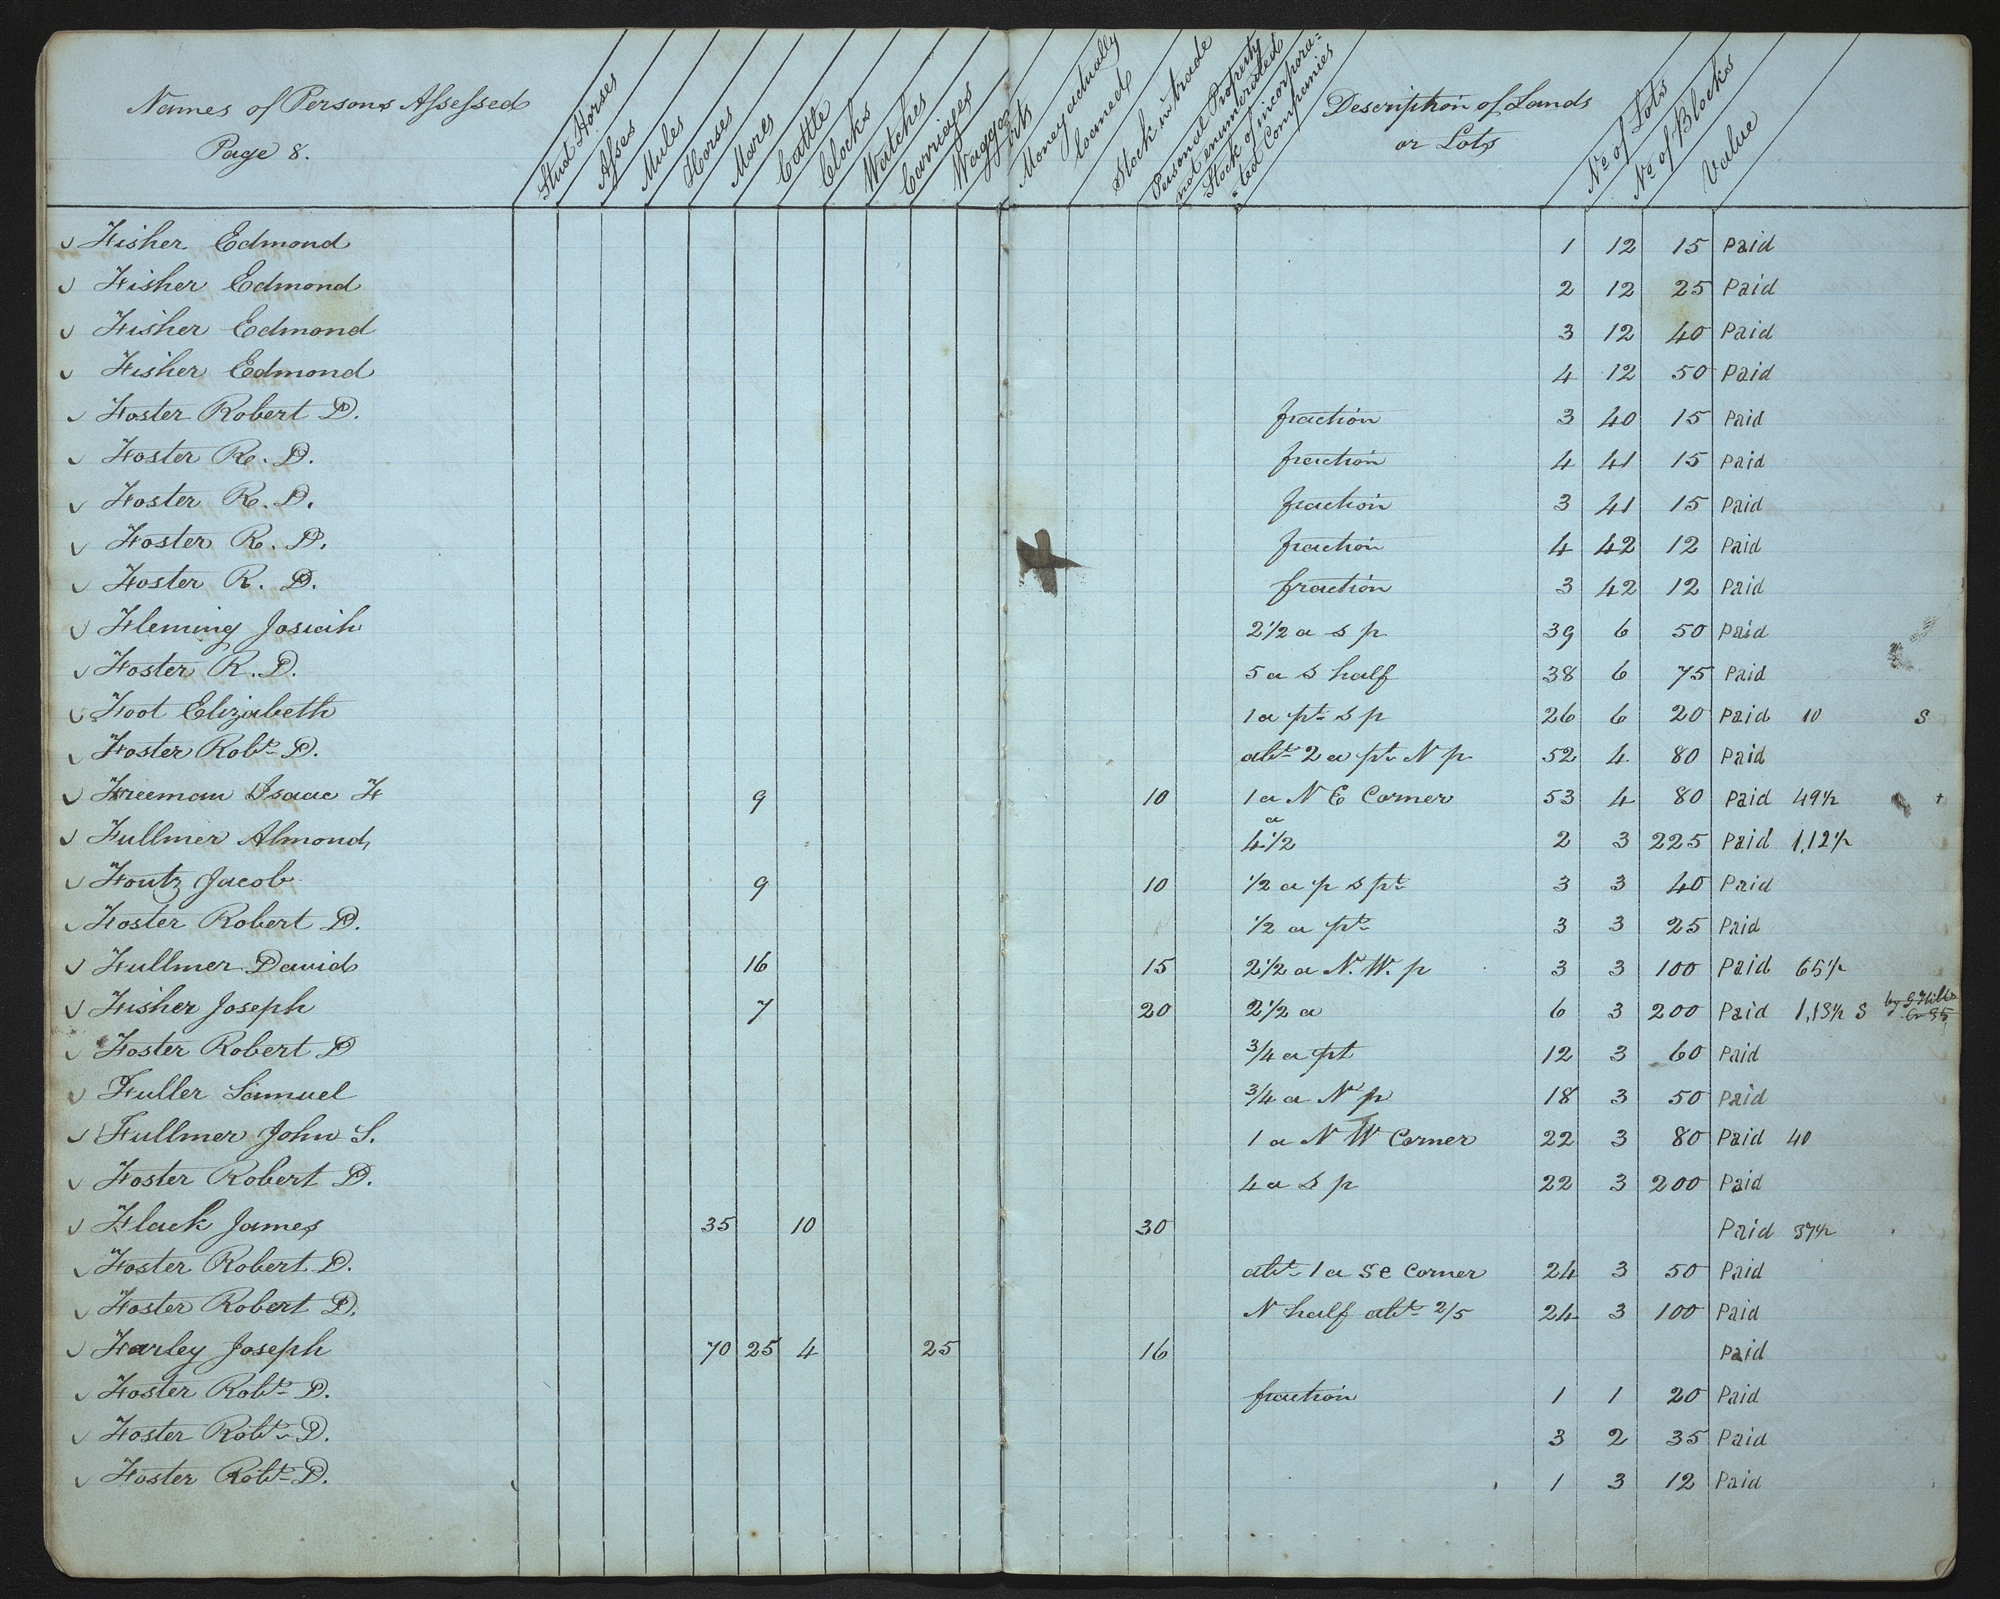 Names of Persons Assessed
Page 8.
Stud Horses
Asses
Mules
Horses
Mares
Cattle
Clocks
Watches
Carriages
Waggons
Money actually loaned
Stock in trade
Personal Property not enumerated
Stock of incorpora=ted Companies
Description of Lands or Lots
No of Lots
No of Blocks
Value
Fisher Edmond 1 12 15 Paid
Fisher Edmond 2 12 25 Paid
Fisher Edmond 3 12 40 Paid
Fisher Edmond 4 12 50 Paid
Foster Robert D. fraction 3 40 15 Paid
Foster R. D. fraction 4 41 15 Paid
Foster R. D. fraction 3 41 15 Paid
Foster R. D. fraction 4 42 12 Paid
Foster R. D. fraction 3 42 12 Paid
Fleming Josiah 2 1/2 a s p 39 6 50 Paid
Foster R. D. 5 a s half 38 6 75 Paid
Foot Elizabeth 1 a pt s p 26 6 20 Paid 10 S
Foster Robt D. abt 2 a pt N p 52 4 80 Paid
Freeman Isaac F 9 10 1 a N E Corner 53 4 80 Paid 49 1/2 +
Fullmer Almond 4 1/2 a 2 3 225 Paid 1,12 1/2
Foutz Jacob 9 10 1/2 a p s pt 3 3 40 Paid
Foster Robert D. 1/2 a pt 3 3 25 Paid
Fullmer David 16 15 2 1/2 a N. W. p 3 3 100 Paid 65 1/2
Fisher Joseph 7 20 2 1/2 a 6 3 200 Paid 1,13 1/2 S
Foster Robert D 3/4 a pt 12 3 60 Paid
Fuller Samuel 3/4 a N p 18 3 50 Paid
Fullmer John S. 1 a N W Corner 22 3 80 Paid 40
Foster Robert D. 4 a s p 22 3 200 Paid
Flack James 35 10 30 Paid 37 1/2
Foster Robert D. abt 1 a SE Corner 24 3 50 Paid
Foster Robert D. N half abt 2/5 24 3 100 Paid
Farley Joseph 70 25 4 25 16 Paid
Foster Robt D. fraction 1 1 20 Paid
Foster Robt D. 3 2 35 Paid
Foster Robt D. 1 3 12 Paid